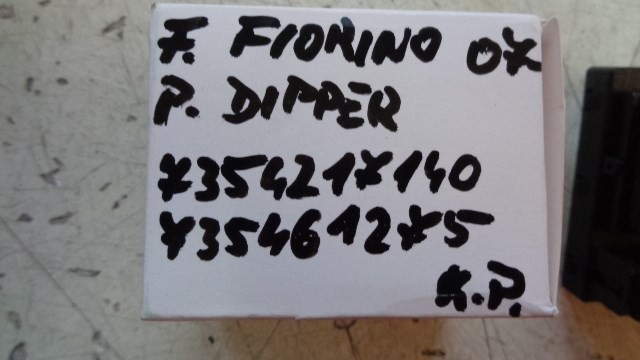 F. FIORINO 07
P. DIPPER
7354217140
735461275
K.P.